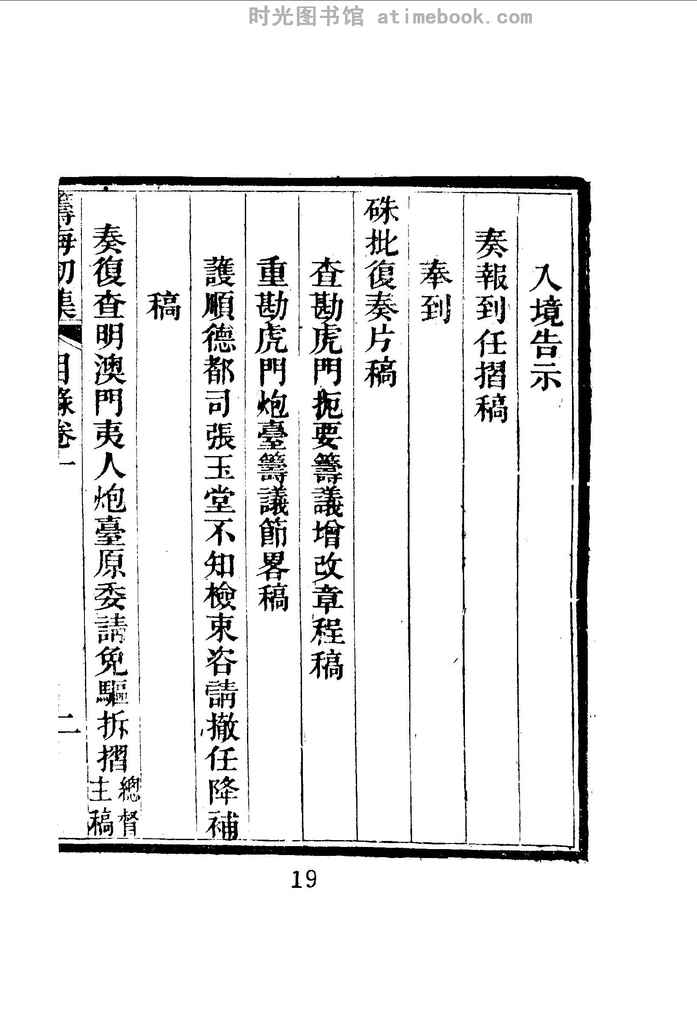 时光图书馆 atimebook.com
入境告示
奏報到任摺稿
奉到
硃批復奏片稿
查勘虎門扼要籌議增改章程稿
重勘虎門炮臺籌議節畧稿
護順德都司張玉堂不知檢束咨請撤任降補
稿
奏復查明澳門夷人炮臺原委請免驅拆摺總督
主稿
籌海初集 目錄卷一 二
19